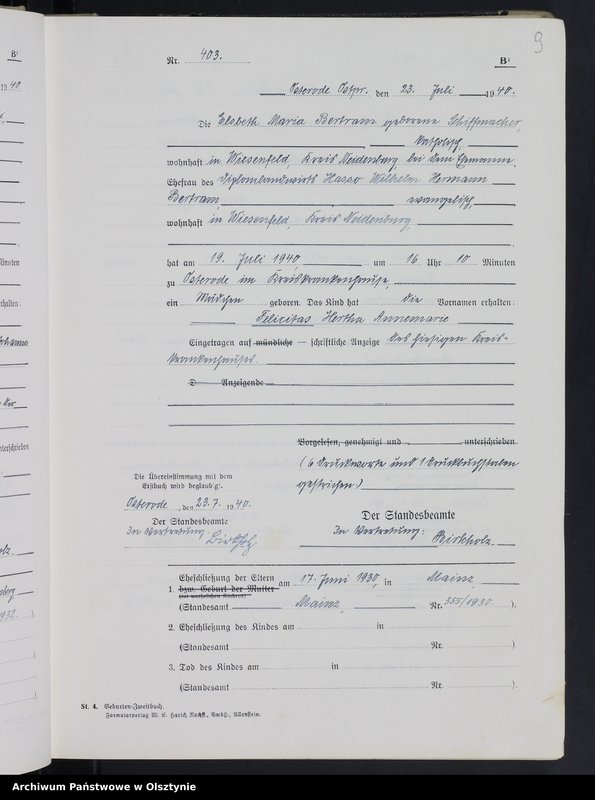 9
Nr. 403.
B¹
Osterode Ostpr. den 23. Juli 1940.
Die Elsbeth Maria Bertram geborene Schiffmacher,
katholisch,
wohnhaft in Wiesenfeld, Kreis Neidenburg bei dem Ehemanne,
Ehefrau des Diplomlandwirts Hasso Wilhelm Hermann
Bertram, evangelisch,
wohnhaft in Wiesenfeld, Kreis Neidenburg,
hat am 19. Juli 1940, um 16 Uhr 10 Minuten
zu Osterode im Kreiskrankenhause,
ein Mädchen geboren. Das Kind hat die Vornamen erhalten:
Felicitas Hertha Annemarie
Eingetragen auf mündliche – schriftliche Anzeige des hiesigen Kreis-
krankenhauses.
D Anzeigende
Vorgelesen, genehmigt und unterschrieben
(6 Druckworte und 1 Druckbuchstaben
gestrichen)
Die Übereinstimmung mit dem
Erstbuch wird beglaubigt.
Osterode, den 23.7. 1940.
Der Standesbeamte
In Vertretung:
Birkholz
Der Standesbeamte
In Vertretung:
Birkholz.
1. Eheschließung der Eltern
bzw. Geburt der Mutter
(bei unehelichen Kindern)
am 17. Juni 1930, in Mainz,
(Standesamt Mainz, Nr. 355/1930 ).
2. Eheschließung des Kindes am in
(Standesamt Nr. )
3. Tod des Kindes am in
(Standesamt Nr. )
St. 4. Geburten-Zweitbuch.
Formularverlag W. E. Harich Nachf., GmbH., Allenstein.
B¹
1940
Minuten
erhalten:
Johanna
unterschrieben
1932. )
Archiwum Państwowe w Olsztynie